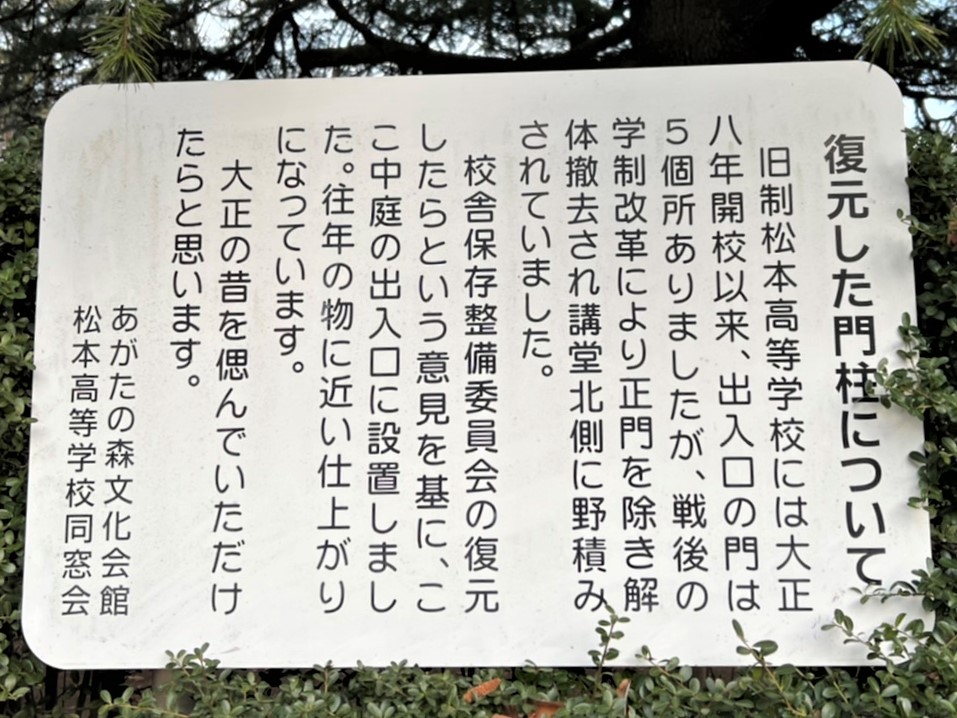 復元した門柱について
旧制松本高等学校には大正
八年開校以来、出入口の門は
5個所ありましたが、戦後の
学制改革により正門を除き解
体撤去され講堂北側に野積み
されていました。
校舎保存整備委員会の復元
したらという意見を基に、こ
こ中庭の出入口に設置しまし
た。往年の物に近い仕上がり
になっています。
大正の昔を偲んでいただけ
たらと思います。
あがたの森文化会館
松本高等学校同窓会